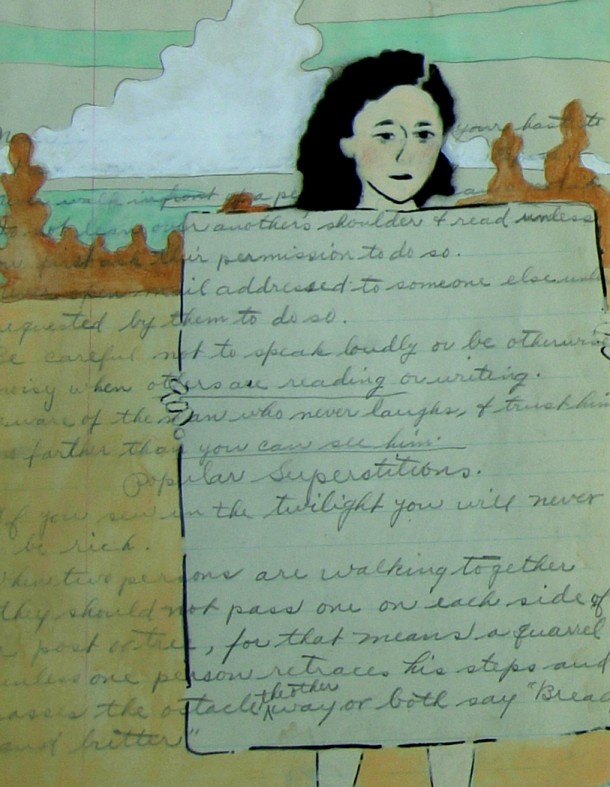 your hat to
walk in front of a pe
to not lean over another's shoulder & read unless
you first ask their permission to do so.
open mail addressed to someone else unle
requested by them to do so.
Be careful not to speak loudly or be otherwise
noisy when others are reading or writing.
eware of the man who never laughs, & trust him
no farther than you can see him.
Popular Superstitions.
If you sew in the twilight you will never
be rich.
When two persons are walking together
they should not pass one on each side of
a post or tree, for that means a quarrel
unless one person retraces his steps and
passes the ostacle the other way or both say "Bread
and butter"